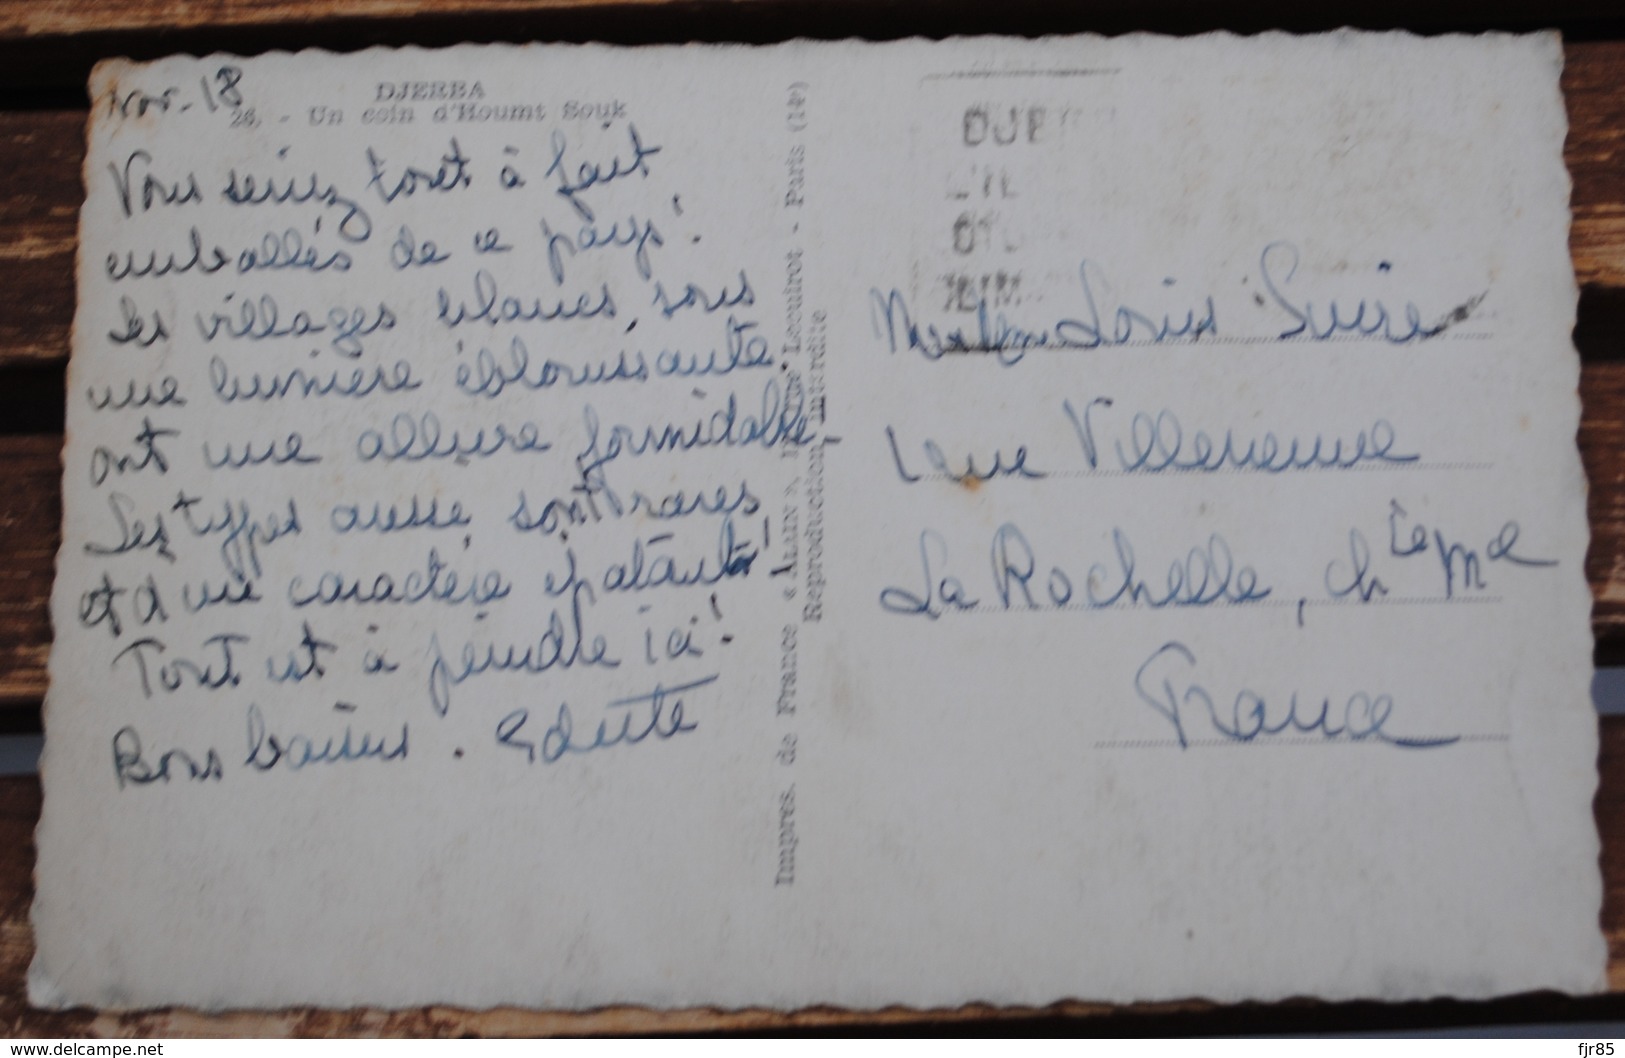 Nov. 18
DJERBA
26. - Un coin d'Houmt Souk
Vous seriez tout à fait
emballés de ce pays!
Les villages blancs, sous
une lumière éblouissante,
ont une allure formidable.
Les types aussi sont rares
et d'un caractère épatant!
Tout est à peindre ici!
Bons baisers. Odette
Impres. de France « ALAIN », Lecuirot - Paris (14e)
Reproduction interdite
DJE
Louis Suire
Villeneuve
La Rochelle, Chte Mme
France
www.delcampe.net
fjr85